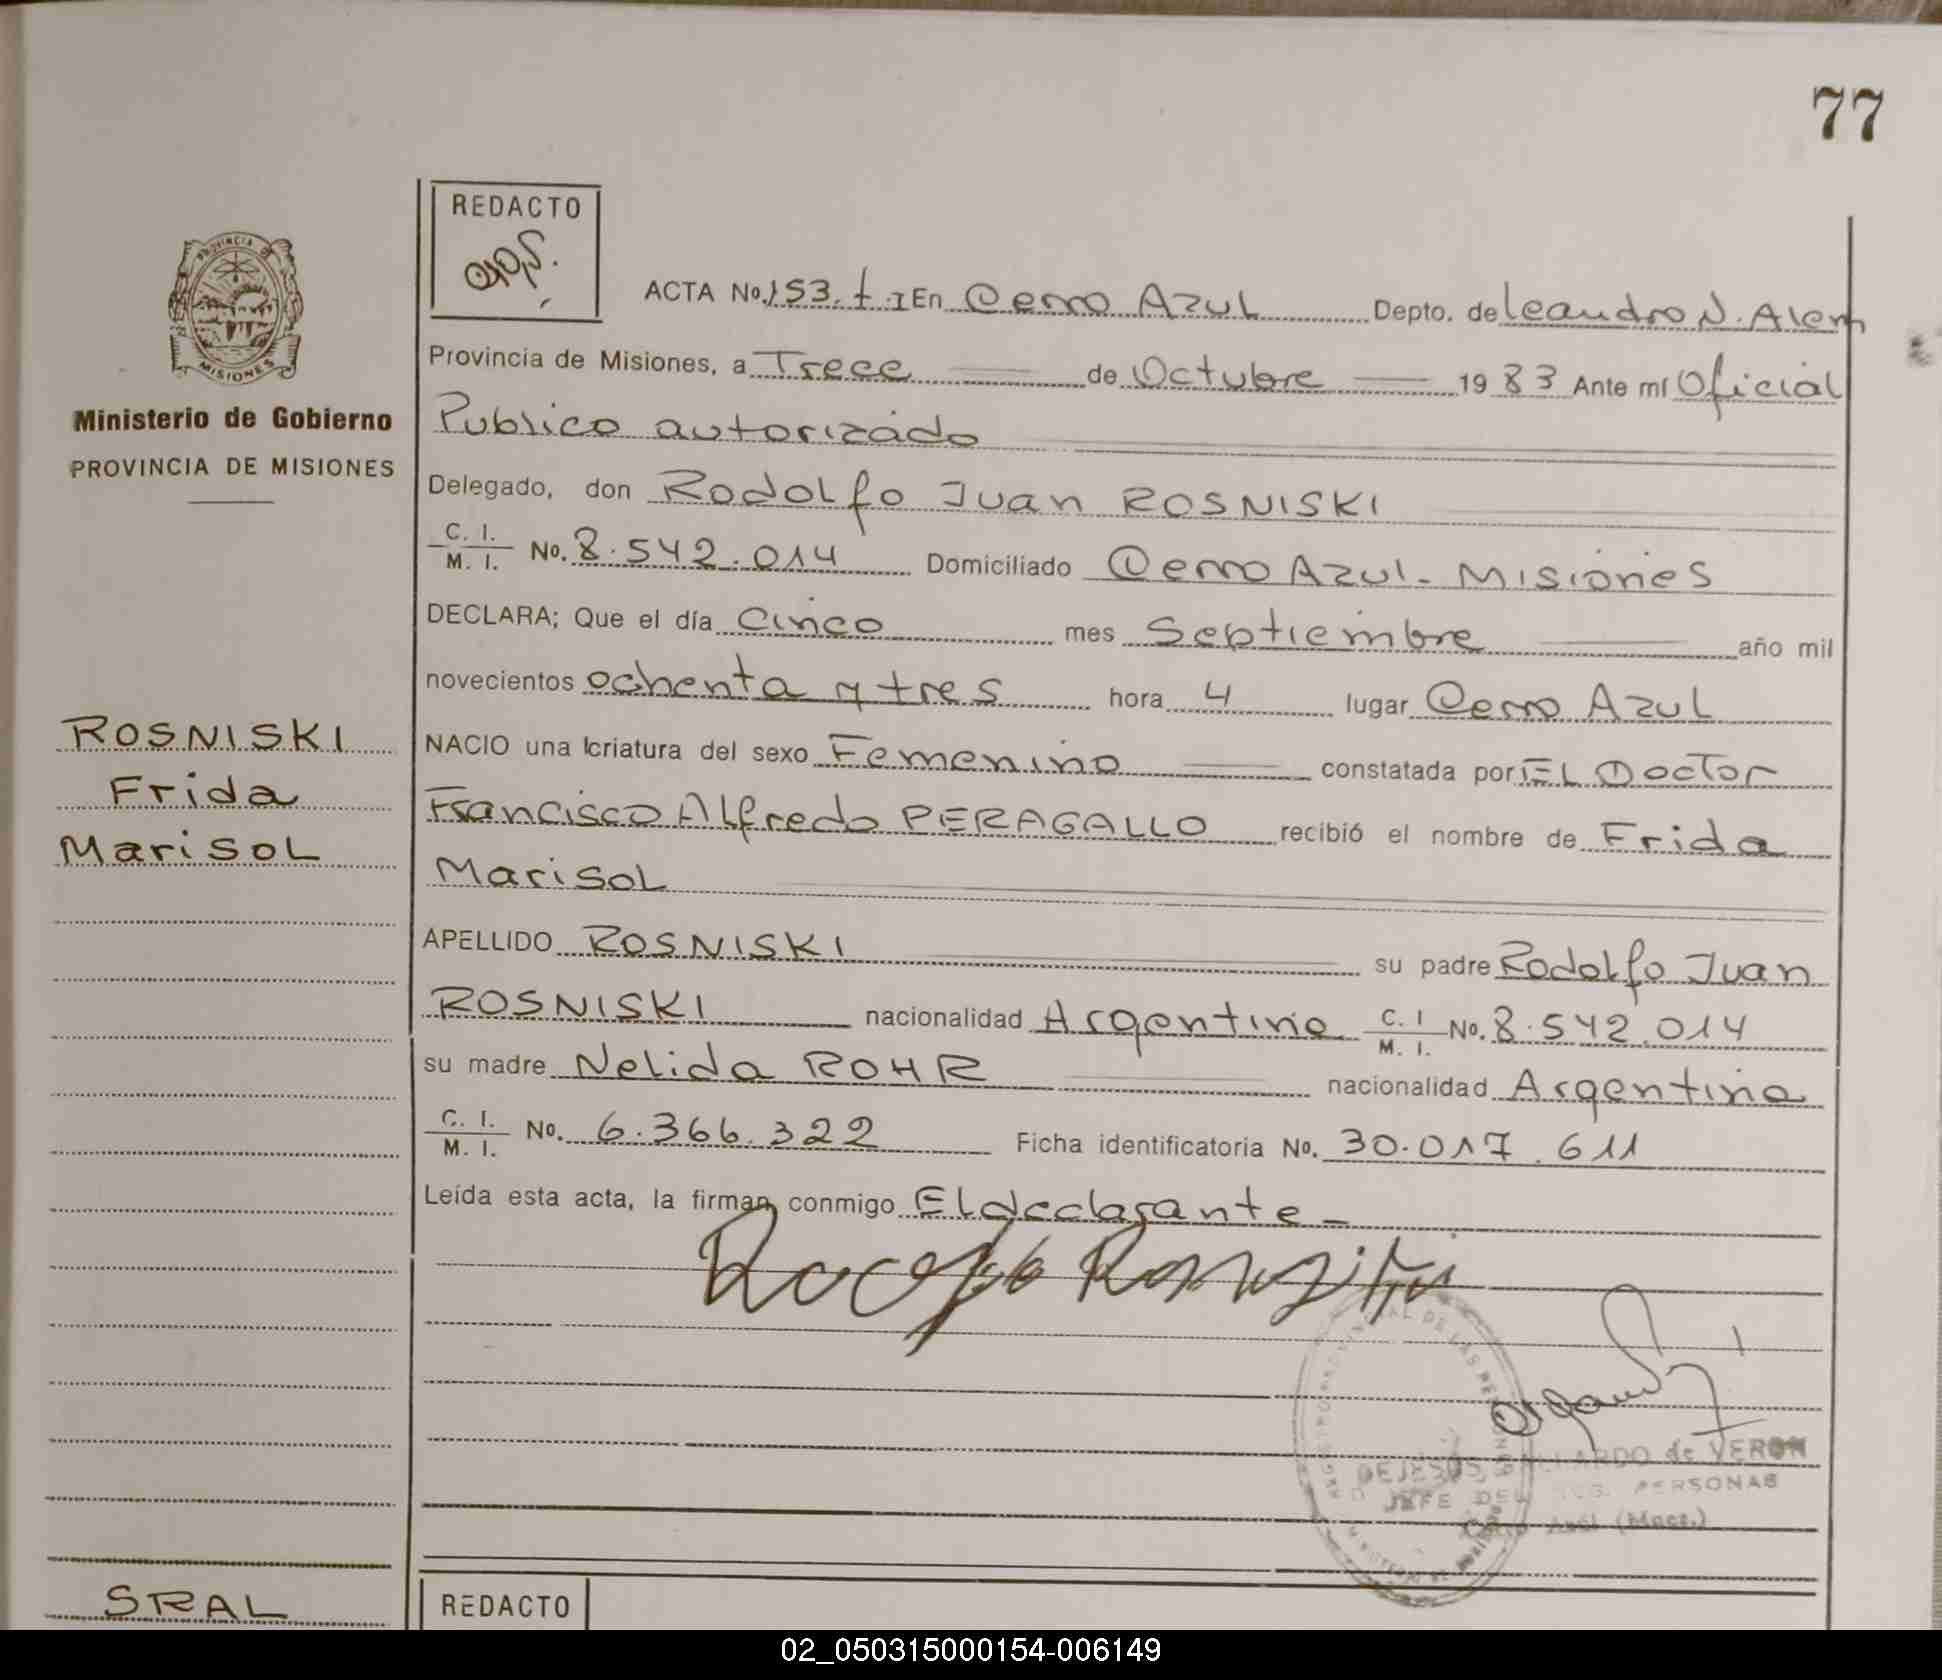 77
REDACTO
ACTA No. 153. t. I En Cerro Azul Depto. de Leandro N. Alem
Provincia de Misiones, a Trece de Octubre 1983 Ante mí Oficial
Publico autorizado
Delegado, don Rodolfo Juan ROSNISKI
C. I.
M. I. No. 8.542.014 Domiciliado Cerro Azul - Misiones
DECLARA; Que el día Cinco mes Septiembre año mil
novecientos ochenta y tres hora 4 lugar Cerro Azul
NACIO una criatura del sexo Femenino constatada por EL Doctor
Francisco Alfredo PERAGALLO recibió el nombre de Frida
Marisol
APELLIDO ROSNISKI su padre Rodolfo Juan
ROSNISKI nacionalidad Argentina C. I
M. I. No. 8.542.014
su madre Nelida ROHR nacionalidad Argentina
C. I.
M. I. No. 6.366.322 Ficha identificatoria No. 30.017.611
Leída esta acta, la firman conmigo El declarante -
PROVINCIA DE
MISIONES
Ministerio de Gobierno
PROVINCIA DE MISIONES
ROSNISKI
Frida
Marisol
DE LAS PERSONAS
DEJESUS GALLARDO de VERON
JEFE DEL PERSONAS
Cerro Azul (Mnes.)
SRAL
REDACTO
02_050315000154-006149